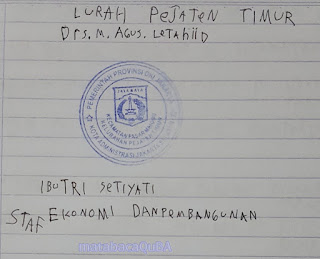 LURAH PEJATEN TIMUR
Drs. M. AGUS. LETAHIID
PEMERINTAH PROVINSI DKI JAKARTA
JAYA RAYA
KECAMATAN PASAR MINGGU
KELURAHAN PEJATEN TIMUR
KOTA ADMINISTRASI JAKARTA SELATAN
IBU TRI SETIYATI
STAF EKONOMI DANPEMBANGUNAN